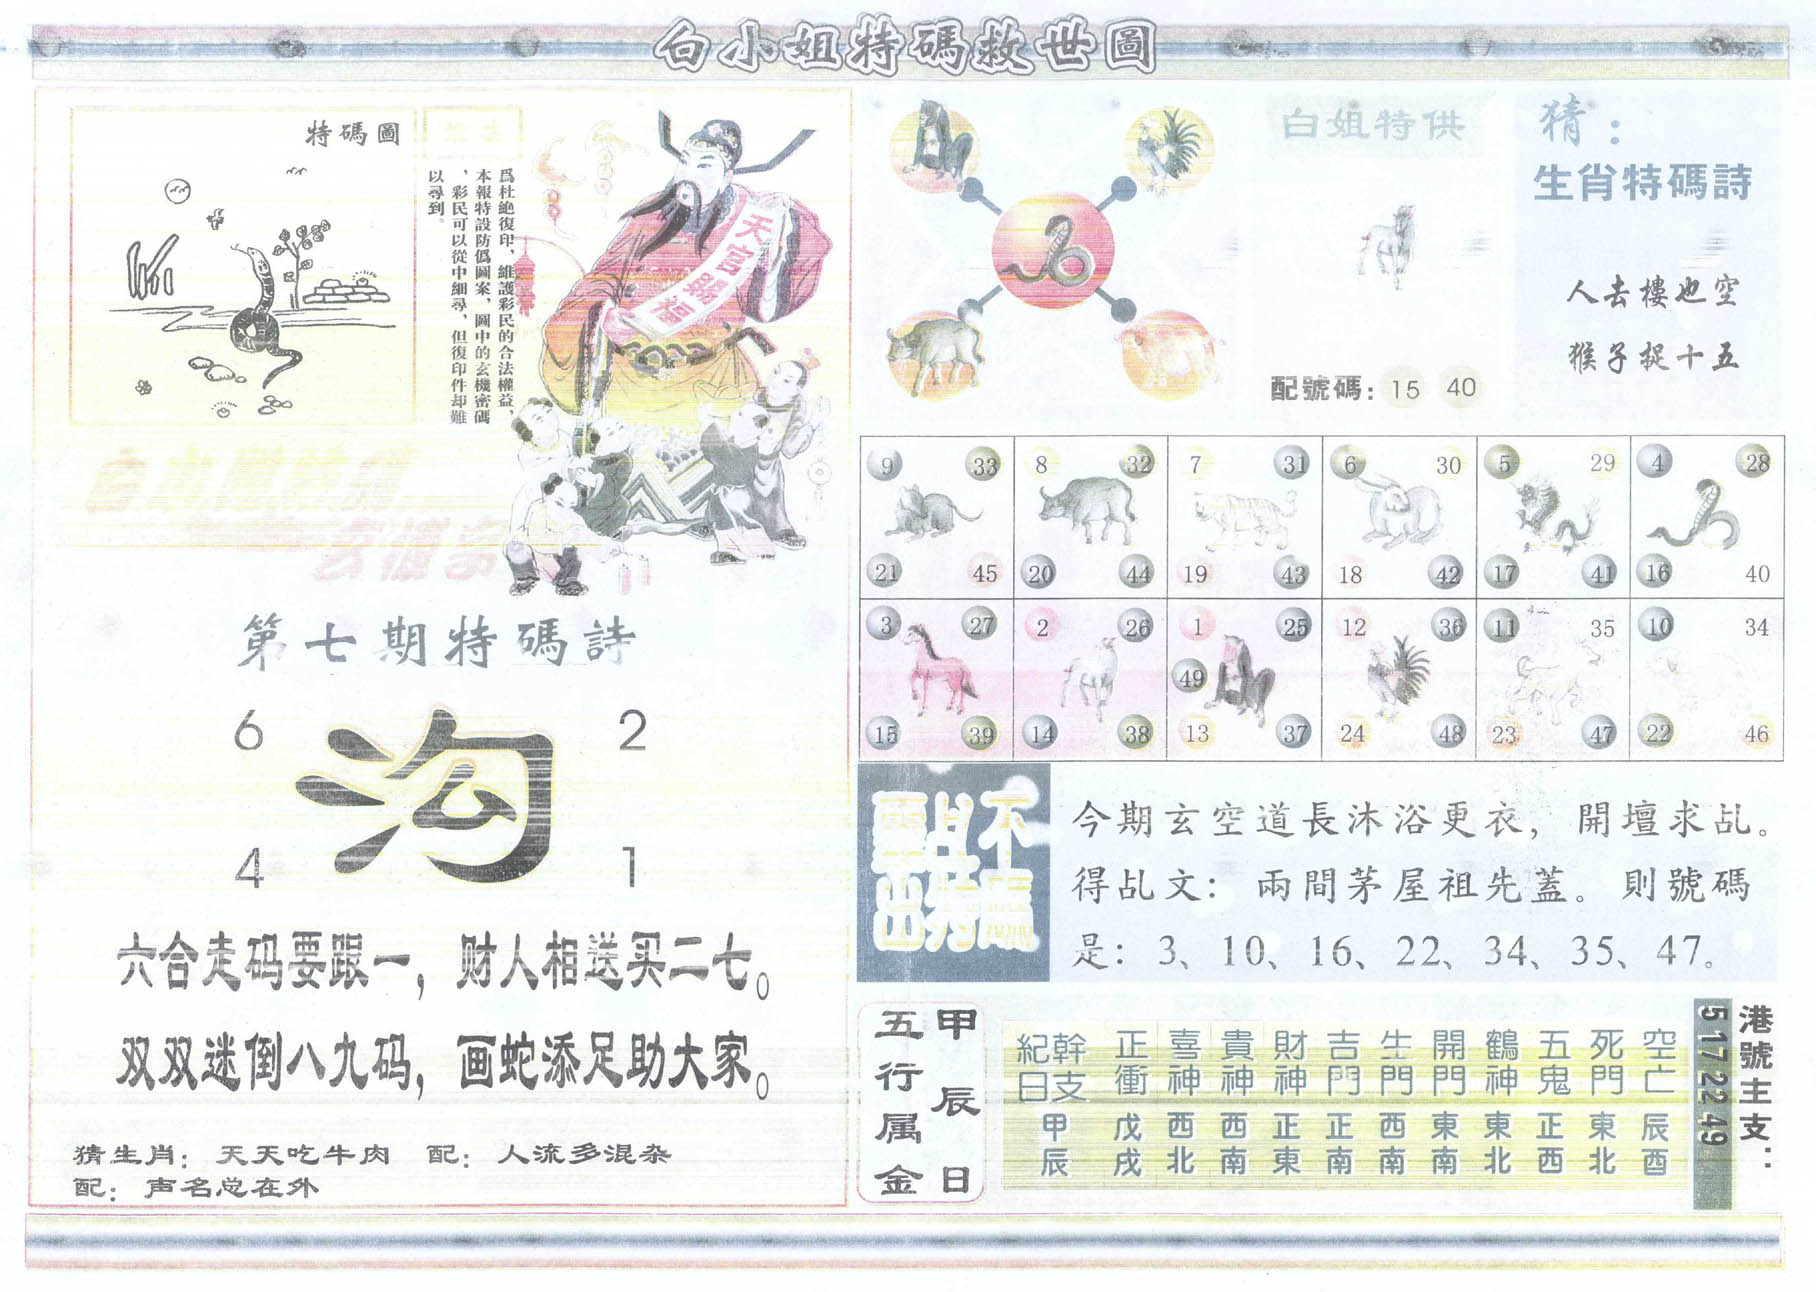 白小姐特碼救世圖
特碼圖
爲杜絶復印，維護彩民的合法權益，
本報特設防僞圖案，圖中的玄機密碼
，彩民可以從中細尋，但復印件却難
以尋到。
天官賜福
第七期特碼詩
6 2
沟
4 1
六合走码要跟一，财人相送买二七。
双双迷倒八九码，画蛇添足助大家。
猜生肖：天天吃牛肉 配：人流多混杂
配：声名总在外
白姐特供
配號碼：15 40
猜：
生肖特碼詩
人去樓也空
猴子捉十五
9 33 8 32 7 31 6 30 5 29 4 28
21 45 20 44 19 43 18 42 17 41 16 40
3 27 2 26 1 25 12 36 11 35 10 34
49
15 39 14 38 13 37 24 48 23 47 22 46
今期玄空道長沐浴更衣，開壇求乩。
得乩文：兩間茅屋祖先蓋。則號碼
是：3、10、16、22、34、35、47。
甲辰日
五行属金
幹支紀日 正衝 喜神 貴神 財神 吉門 生門 開門 鶴神 五鬼 死門 空亡
甲辰 戊戌 西北 西南 正東 正南 西南 東南 東北 正西 東北 辰酉
港號主支：
5 17 22 49